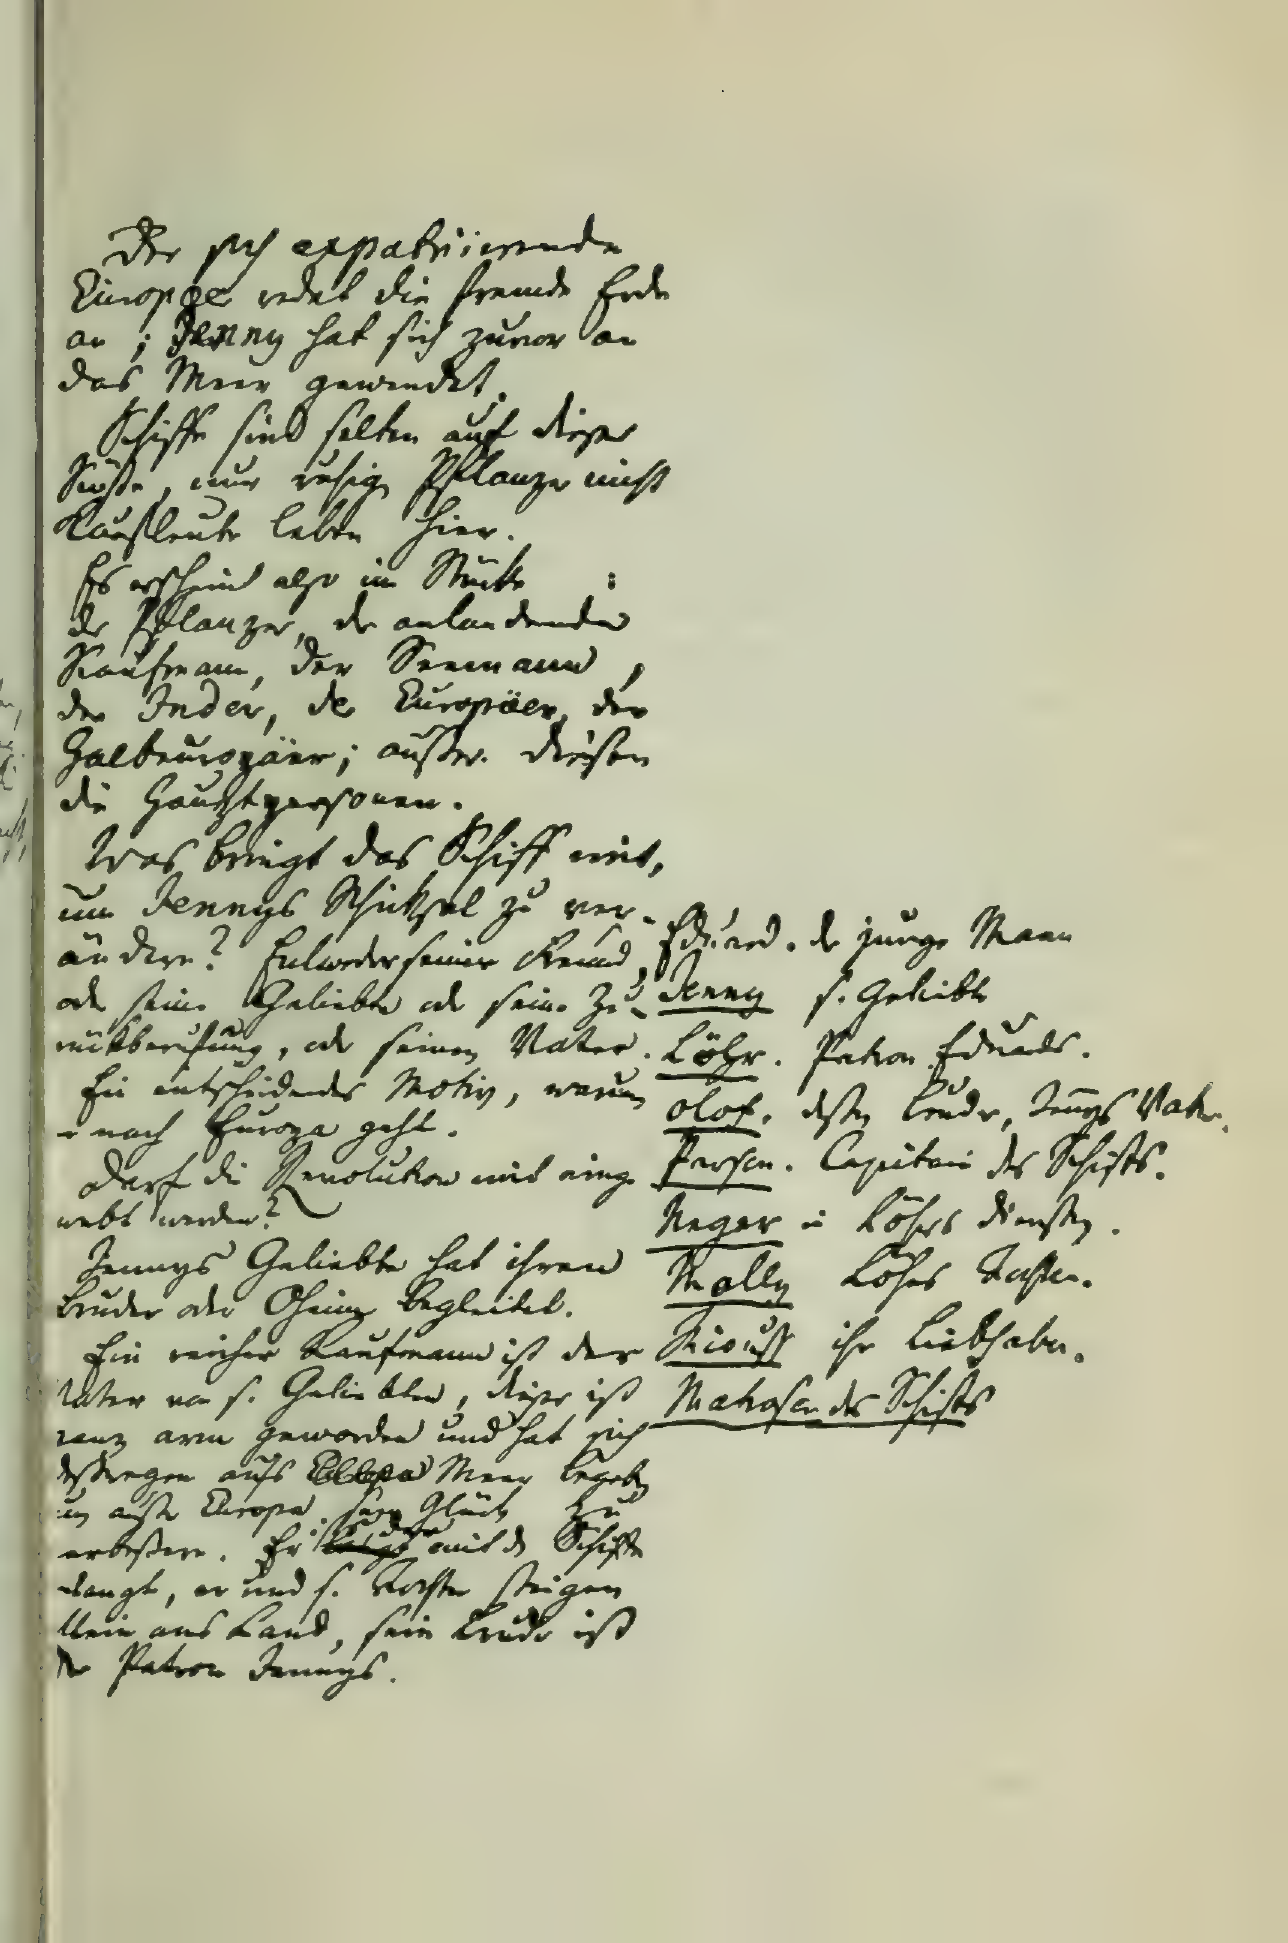 Der sich expatriierende
Europäer redet die fremde Erde
an; Jenny hat sich zuvor an
das Meer gewendet.
Schiffe sind selten auf dieser
Küste, nur ruhige Pflanzer nicht
Kaufleute leben hier.
Es erscheint also im Stücke :
der Pflanzer, der anlandende
Kaufmann, der Seemann,
der Inder, der Europäer, der
Halbeuropäer; außer diesen
die Hauptpersonen.
Was bringt das Schiff mit,
um Jennys Schicksal zu ver-
ändern? Entweder seinen Freund,
oder seine Geliebte oder seine Zu-
rückberufung, oder seinen Vater.
Ein entscheidendes Motiv, warum
er nach Europa geht.
Darf die Revolution mit einge
webt werden?
Jennys Geliebte hat ihren
Bruder oder Oheim begleitet.
Ein reicher Kaufmann ist der
Vater von s. Geliebten, dieser ist
ganz arm geworden und hat sich
deßwegen aufs Meer begeben
um außer Europa sein Glück zu
verbeßern. Er mit dem Schiffe
anlangt, er und s. Tochter steigen
allein ans Land, sein Bruder ist
der Patron Jennys.
Eduard. der junge Mann
Jenny s. Geliebte
Löhr. Patron Eduards.
Olof. deßen Bruder, Jennys Vater.
Person. Capitain des Schiffs.
Neger in Löhrs Diensten.
Molly Löhrs Tochter.
ihr Liebhaber.
Matrosen des Schiffs